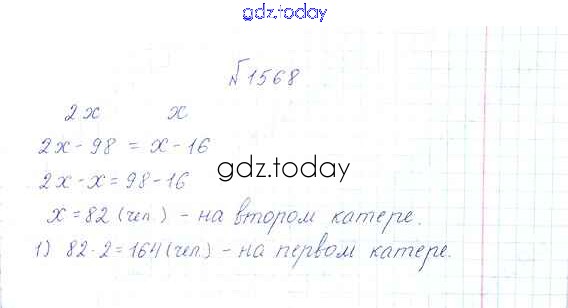 gdz.today
№1568
2x x
2x - 98 = x - 16
gdz.today
2x - x = 98 - 16
x = 82 (чел.) - на втором катере.
1) 82 · 2 = 164 (чел.) - на первом катере.